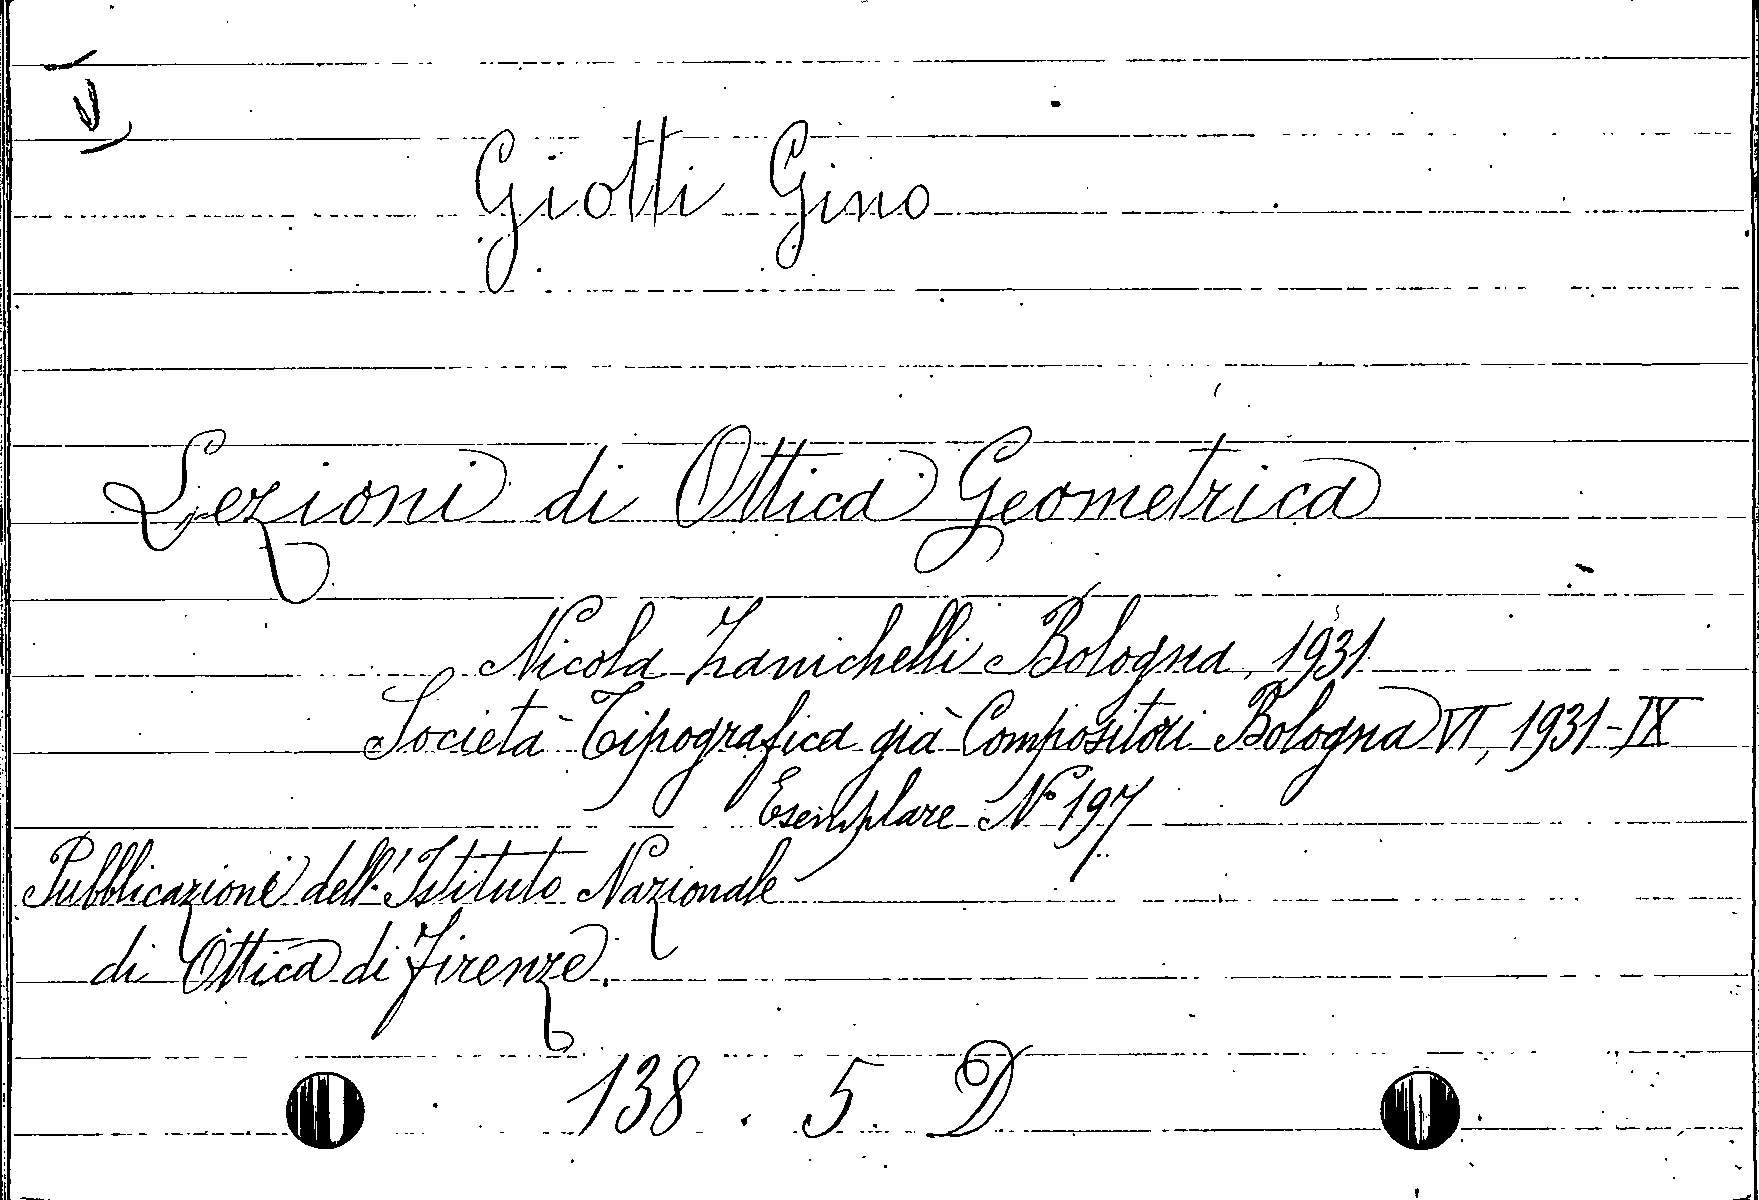 V
Giotti Gino
Lezioni di Ottica Geometrica
Nicola Zanichelli Bologna, 1931
Società Tipografica già Compositori Bologna VI, 1931-IX
Esemplare N° 197
Pubblicazione dell'Istituto Nazionale
di Ottica di Firenze.
138 . 5. D